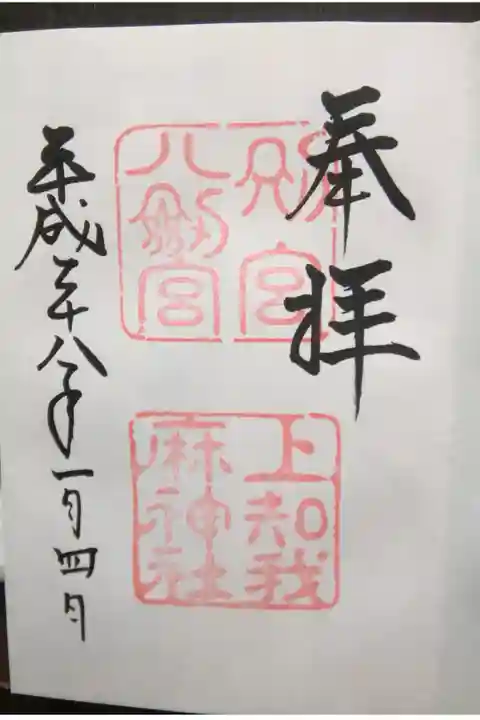 奉拝
別宮
八剱宮
上知我
麻神社
平成二十八年一月四日